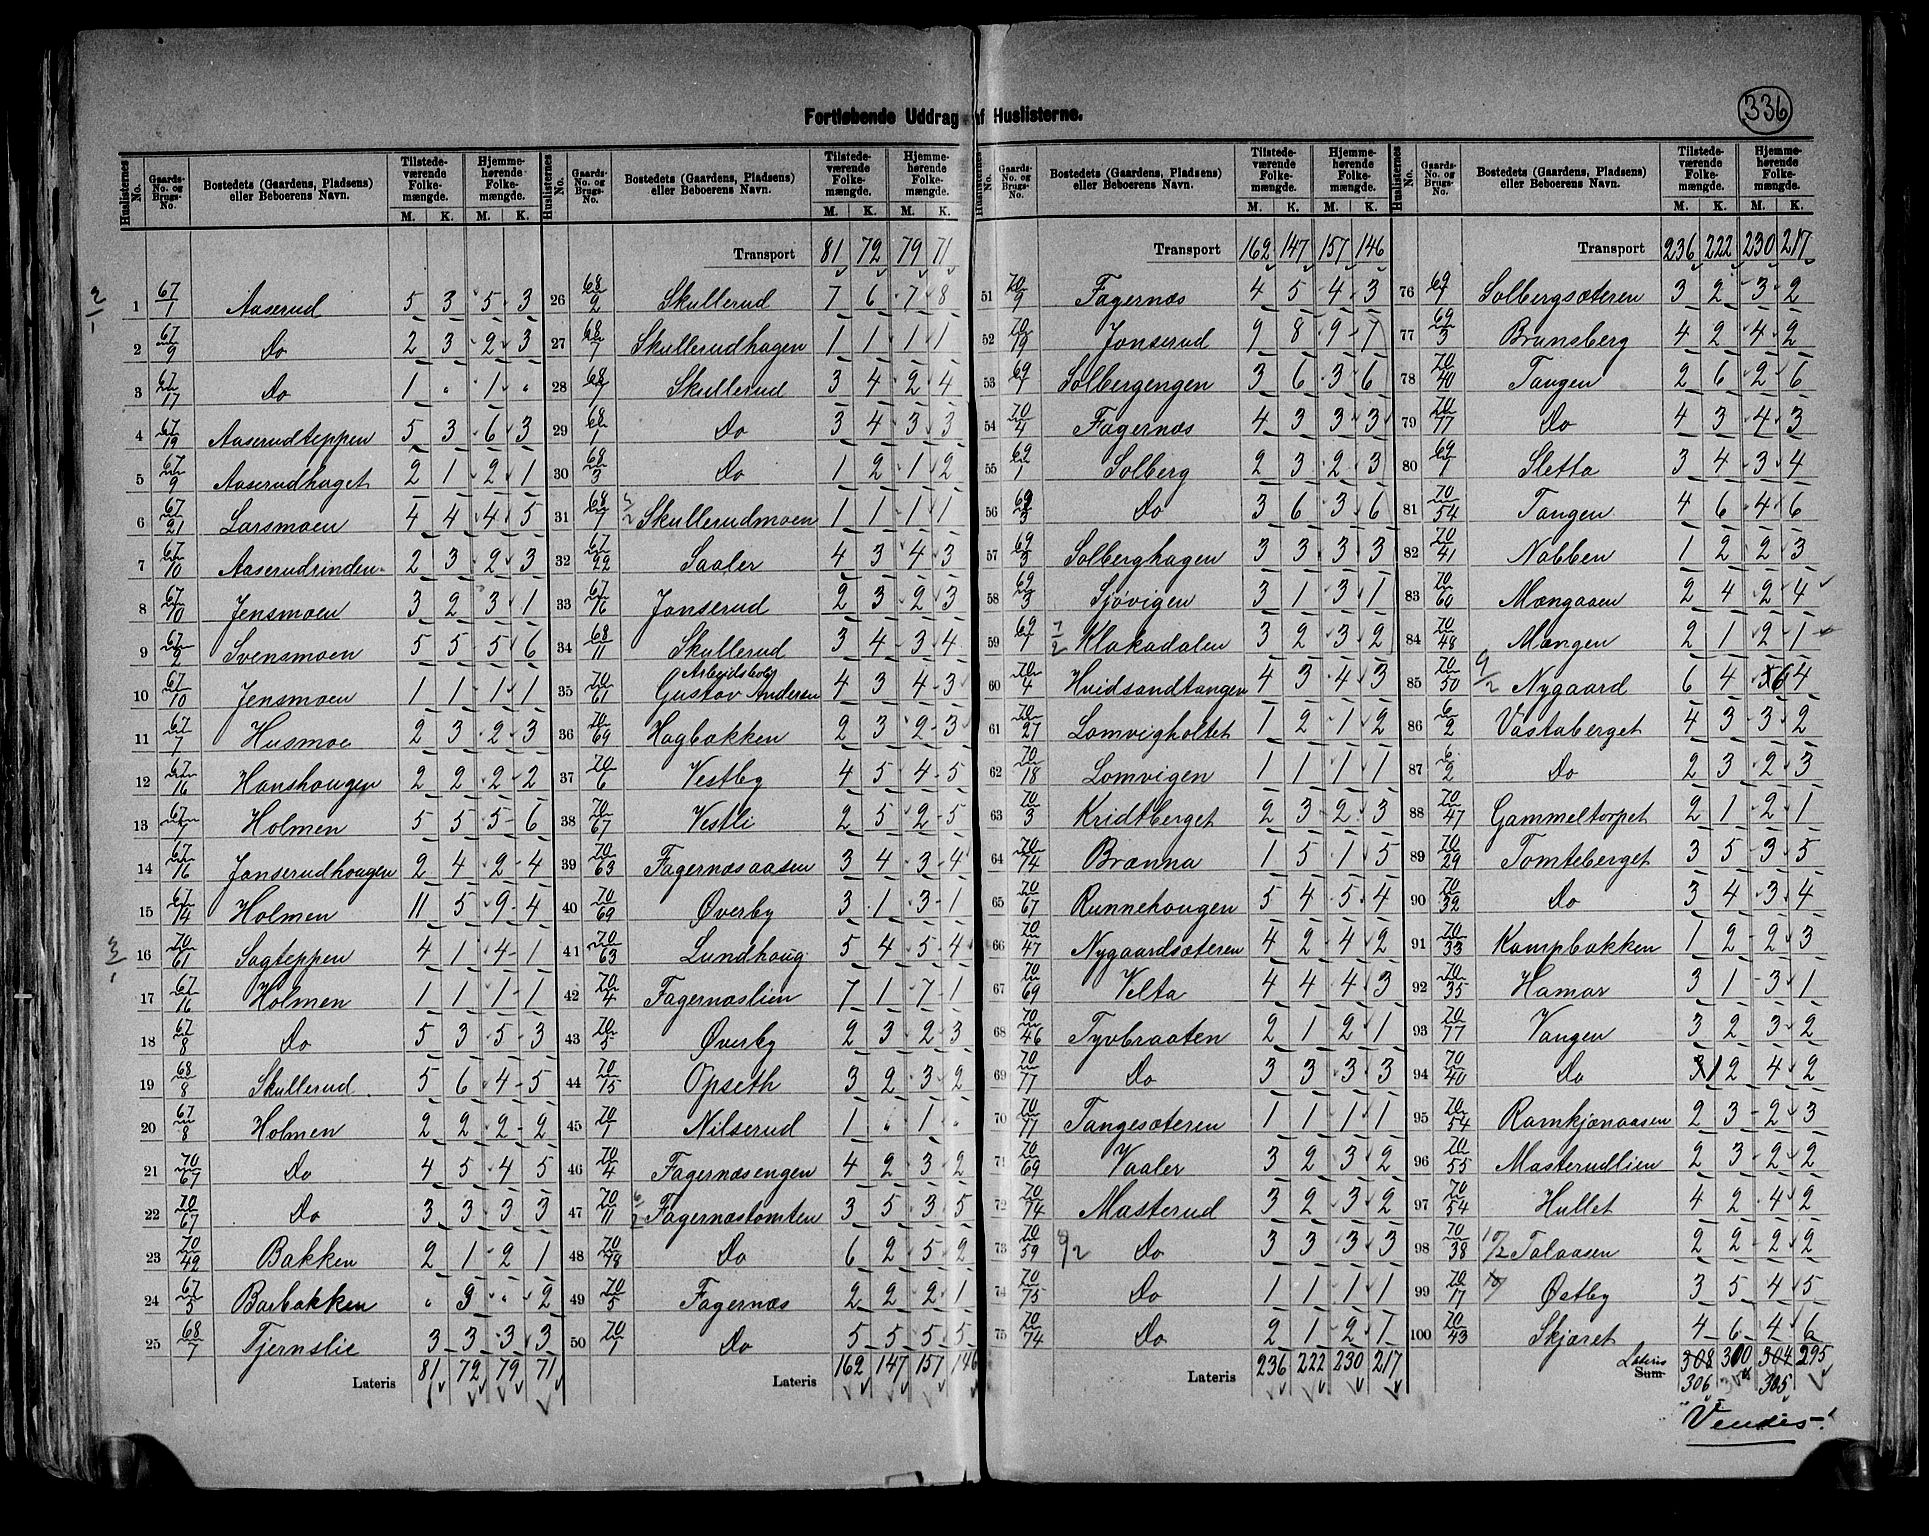 336
Fortløbende Uddrag af Huslisterne.
Huslisternes No. | Gaards-No. og Brugs-No. | Bostedets (Gaardens, Pladsens) eller Beboerens Navn. | Tilstedeværende Folkemængde. M. K. | Hjemmehørende Folkemængde. M. K.
1 67/1 Aaserud 5 3 5 3
2 67/9 Do 2 3 2 3
3 67/17 Do 1 " 1 "
4 67/19 Aaserudteppen 5 3 6 3
5 67/9 Aaserudhaget 2 1 2 1
6 67/21 Larsmoen 4 4 4 5
7 67/10 Aaserudrinden 2 3 2 3
8 67/10 Jensmoen 3 2 3 1
9 67/2 Svensmoen 5 5 5 6
10 67/10 Jensmoen 1 1 1 1
11 67/7 Husmoe 2 3 2 3
12 67/16 Hanshaugen 2 2 2 2
13 67/7 Holmen 5 5 5 6
14 67/16 Jonserudhaugen 2 4 2 4
15 67/14 Holmen 11 5 9 4
16 70/61 Sagteppen 4 1 4 1
17 67/16 Holmen 1 1 1 1
18 67/8 Do 5 3 5 3
19 68/8 Skullerud 5 6 4 5
20 67/8 Holmen 2 2 2 2
21 70/67 Do 4 5 4 5
22 70/67 Do 3 3 3 3
23 70/42 Bakken 2 1 2 1
24 67/5 Barbakken " 3 " 2
25 68/7 Tjernslie 3 3 3 3
Lateris 81 72 79 71
Transport 81 72 79 71
26 68/2 Skullerud 7 6 7 8
27 68/7 Skullerudhagen 1 1 1 1
28 68/7 Skullerud 3 4 2 4
29 68/1 Do 3 4 3 3
30 68/3 Do 1 2 1 2
31 68/7 Skullerudmoen 1 1 1 1
32 67/22 Saaler 4 3 4 3
33 67/16 Jonserud 2 3 2 3
34 68/11 Skullerud 3 4 3 4
35 70/61 Arbeidsbolig Gustav Andersen 4 3 4 3
36 70/69 Hagbakken 2 3 2 3
37 70/6 Vestby 4 5 4 5
38 70/67 Vestli 2 5 2 5
39 70/63 Fagernæsaasen 3 4 3 4
40 70/69 Øverby 3 1 3 1
41 70/63 Lundhoug 5 4 5 4
42 70/4 Fagernæslien 7 1 7 1
43 70/5 Øverby 2 3 2 3
44 70/15 Opseth 3 2 3 2
45 70/1 Nilserud 1 " 1 "
46 70/4 Fagernæsengen 4 2 3 2
47 70/11 Fagernæstomten 3 5 3 5
48 70/78 Do 6 2 5 2
49 70/5 Fagernæs 2 2 2 1
50 70/1 Do 5 5 5 5
Lateris 162 147 157 146
Transport 162 147 157 146
51 70/9 Fagernæs 4 5 4 3
52 70/19 Jonserud 9 8 9 7
53 69/1 Solbergengen 3 6 3 6
54 70/4 Fagernæs 4 3 3 3
55 69/1 Solberg 2 3 2 3
56 69/3 Do 3 6 3 6
57 69/3 Solberghagen 3 3 3 3
58 69/3 Sjøvigen 3 1 3 1
59 69/1 Klakadalen 3 2 3 2
60 70/4 Hvidsandtangen 4 3 4 3
61 70/27 Lomvigholtet 1 2 1 2
62 70/18 Lomvigen 1 1 1 1
63 70/3 Kridtberget 2 3 2 3
64 70/74 Brænna 1 5 1 5
65 70/67 Runnehougen 5 4 5 4
66 70/47 Nygaardsæteren 4 2 4 2
67 70/69 Velta 4 4 4 3
68 70/46 Tyvbraaten 2 1 2 1
69 70/77 Do 3 3 3 3
70 70/77 Tangesæteren 1 1 1 1
71 70/69 Vaaler 3 2 3 2
72 70/74 Masterud 3 2 3 2
73 70/59 Do 3 3 3 3
74 70/75 Do 1 1 1 1
75 70/74 Do 2 1 2 1
Lateris 236 222 230 217
Transport 236 222 230 217
76 69/1 Solbergsæteren 3 2 3 2
77 69/3 Brunsberg 4 2 4 2
78 70/40 Tangen 2 6 2 6
79 70/77 Do 4 3 4 3
80 69/1 Sletta 3 4 3 4
81 70/54 Tangen 4 6 4 6
82 70/41 Nabben 1 2 2 3
83 70/60 Mængaaen 2 4 2 4
84 70/48 Mængen 2 1 2 1
85 70/50 Nygaard 6 4 6 4
86 6/2 Vastaberget 4 3 3 2
87 6/2 Do 2 3 2 3
88 70/47 Gammeltorpet 2 1 2 1
89 70/29 Tomteberget 3 5 3 5
90 70/32 Do 3 4 3 4
91 70/33 Kampbakken 1 2 2 3
92 70/35 Hamar 3 1 3 1
93 70/77 Vangen 3 2 3 2
94 70/40 Do 1 2 4 2
95 70/54 Ramkjønaasen 2 3 2 3
96 70/55 Masterudlien 2 3 2 2
97 70/54 Hullet 4 2 4 2
98 70/38 Talaasen 2 2 2 2
99 70/17 Østby 3 5 4 5
100 70/43 Skjæret 4 6 4 6
Lateris Sum 308 300 304 295
306 305
Vendes!